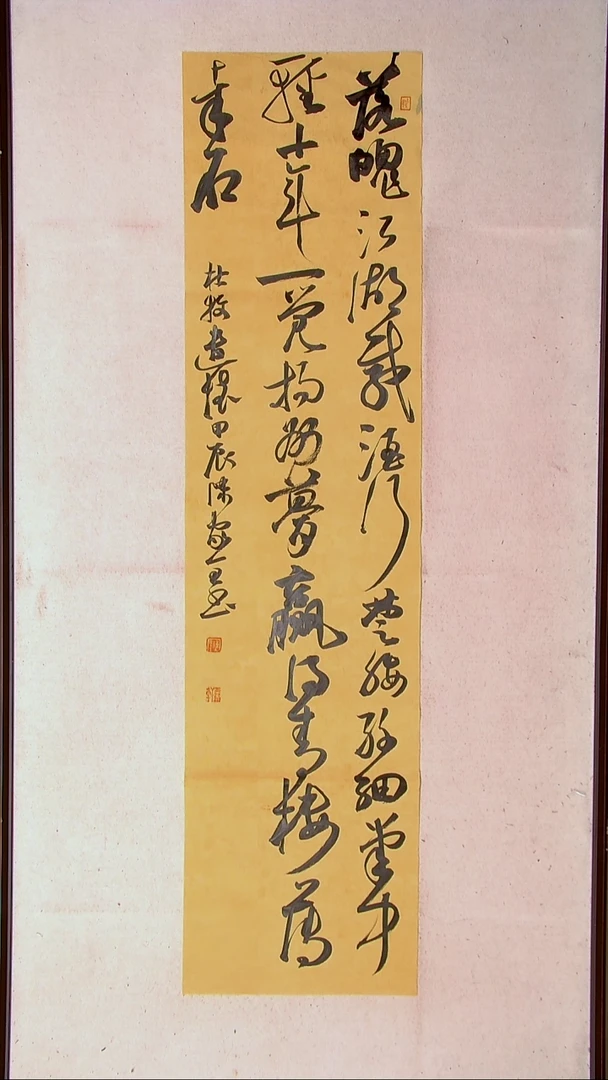 落魄江湖載酒行楚腰纖細掌中
輕十年一覺揚州夢贏得青樓薄
幸名
杜牧遣懷甲辰陳家書